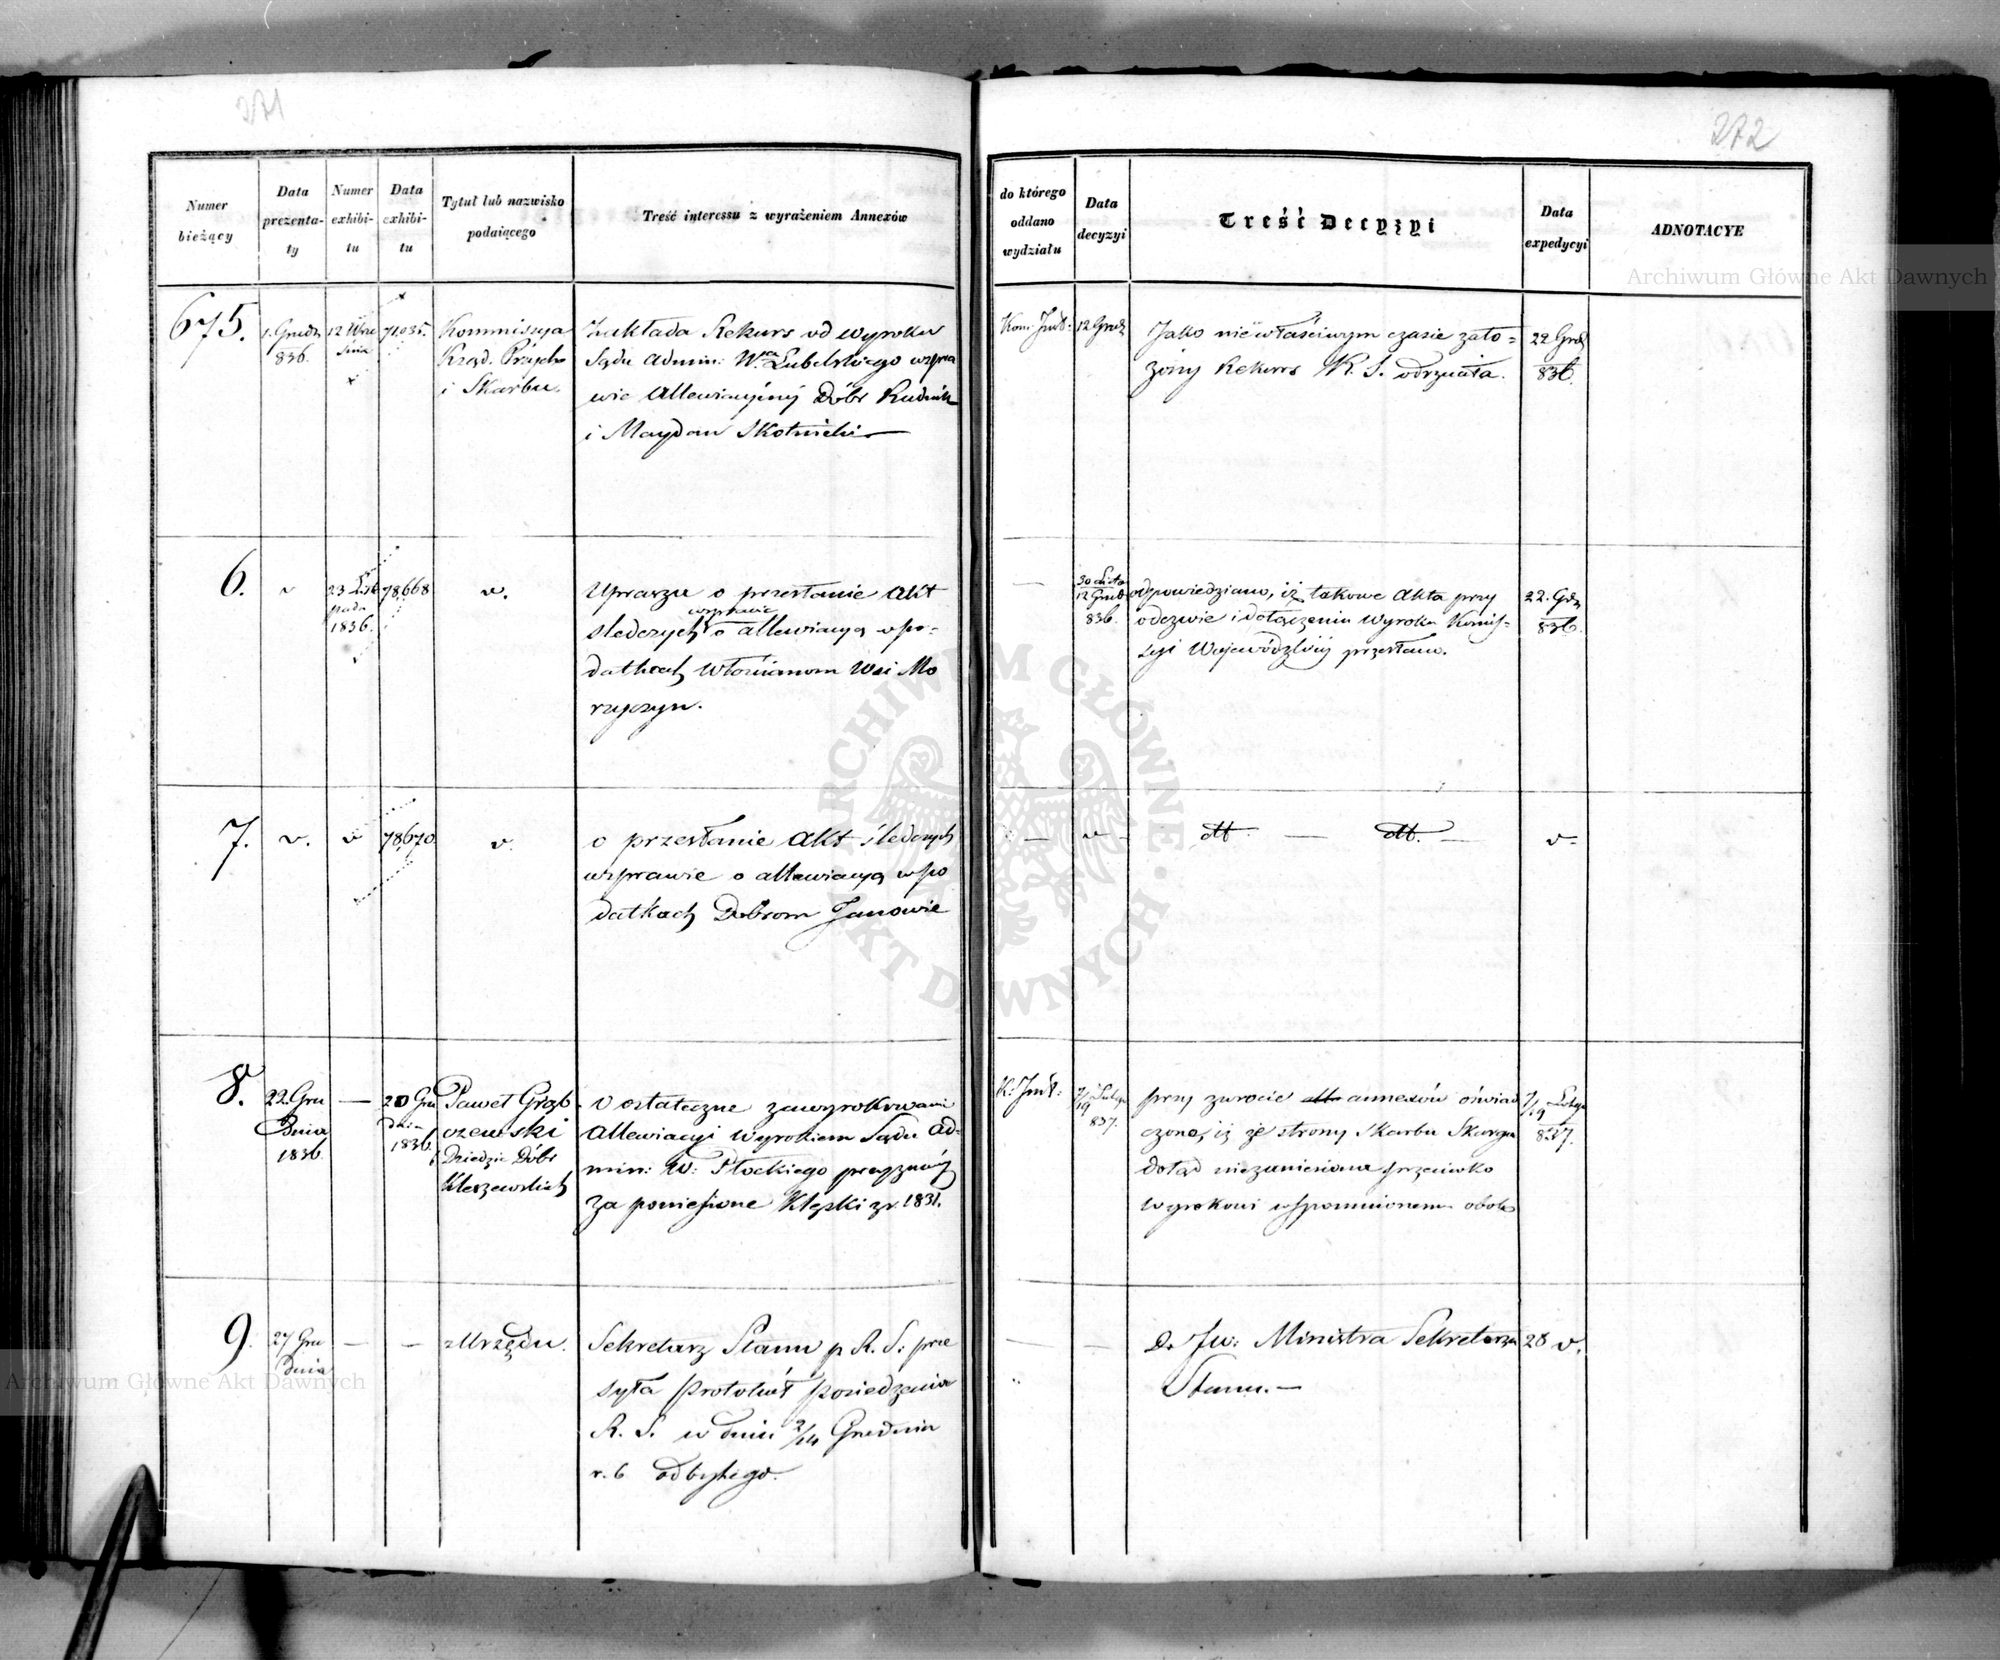 271
Numer bieżący
Data prezenta-ty
Numer exhibi-tu
Data exhibi-tu
Tytuł lub nazwisko podaiącego
Treść interessu z wyrażeniem Annexów
675.
1. Grud. 836.
12 Wrze śnia
71035.
Kommissya
Rząd. Przych
i Skarbu.
Zakłada Rekurs od wyroku
Sądu Admin: W. Lubelskiego wspra
wie Allewiacyiney Dóbr Rudnik
i Maydan Skotnicki
6.
23 Listo
pada
1836.
78,668
v.
Uprasza o przesłanie Akt
wsprawie
sledczych o allewiacyą w po-
datkach Włościanom Wsi Mo
rzyczyn.
7.
v.
v
78,670
v.
o przesłanie Akt śledczych
wsprawie o allewiacyą w po
datkach Dobrom Janowie
8.
22. Gru
dnia
1836.
—
20 Gru
dnia
1836.
Paweł Grąb
czewski
Dziedzic Dóbr
Kleszewskich
o ostateczne zawyrokowanie
Allewiacyi Wyrokiem Sądu Ad-
min: W: Płockiego przyznanéj
za poniesione Klęski z r. 1831.
9.
27 Gru
dnia
—
—
z Urzędu.
Sekretarz Stanu p R. S: prze
syła Protokół Posiedzenia
R. S. w dniu 2/14 Grudnia
r. b odbytego.
272
do którego oddano wydziału
Data decyzyi
Treść Decyzyi
Data expedycyi
ADNOTACYE
Kom: Inst:
12 Grud
Jako niewłaściwym czasie zało=
żony Rekurs K. S. odrzuciła.
22 Grud
836.
—
30 Listo
12 Grud
836.
odpowiedziano, iż takowe Akta przy
odezwie i dołączeniu Wyroku Komis-
syi Wojewódzkiéj przesłano.
22. Gru
836.
—
v
dtt. — dtt. —
v
K: Inst:
7/19 Lutego
837.
przy zwrocie annexów oświad
czono, iż ze strony Skarbu Skarga
dotąd niezaniesiona przeciwko
wyrokowi wspomnionemu
7/19 Lutego
837.
—
—
Do Jw: Ministra Sekretarza
Stanu. —
28 v.
Archiwum Główne Akt Dawnych
Archiwum Główne Akt Dawnych
ARCHIWUM GŁÓWNE AKT DAWNYCH